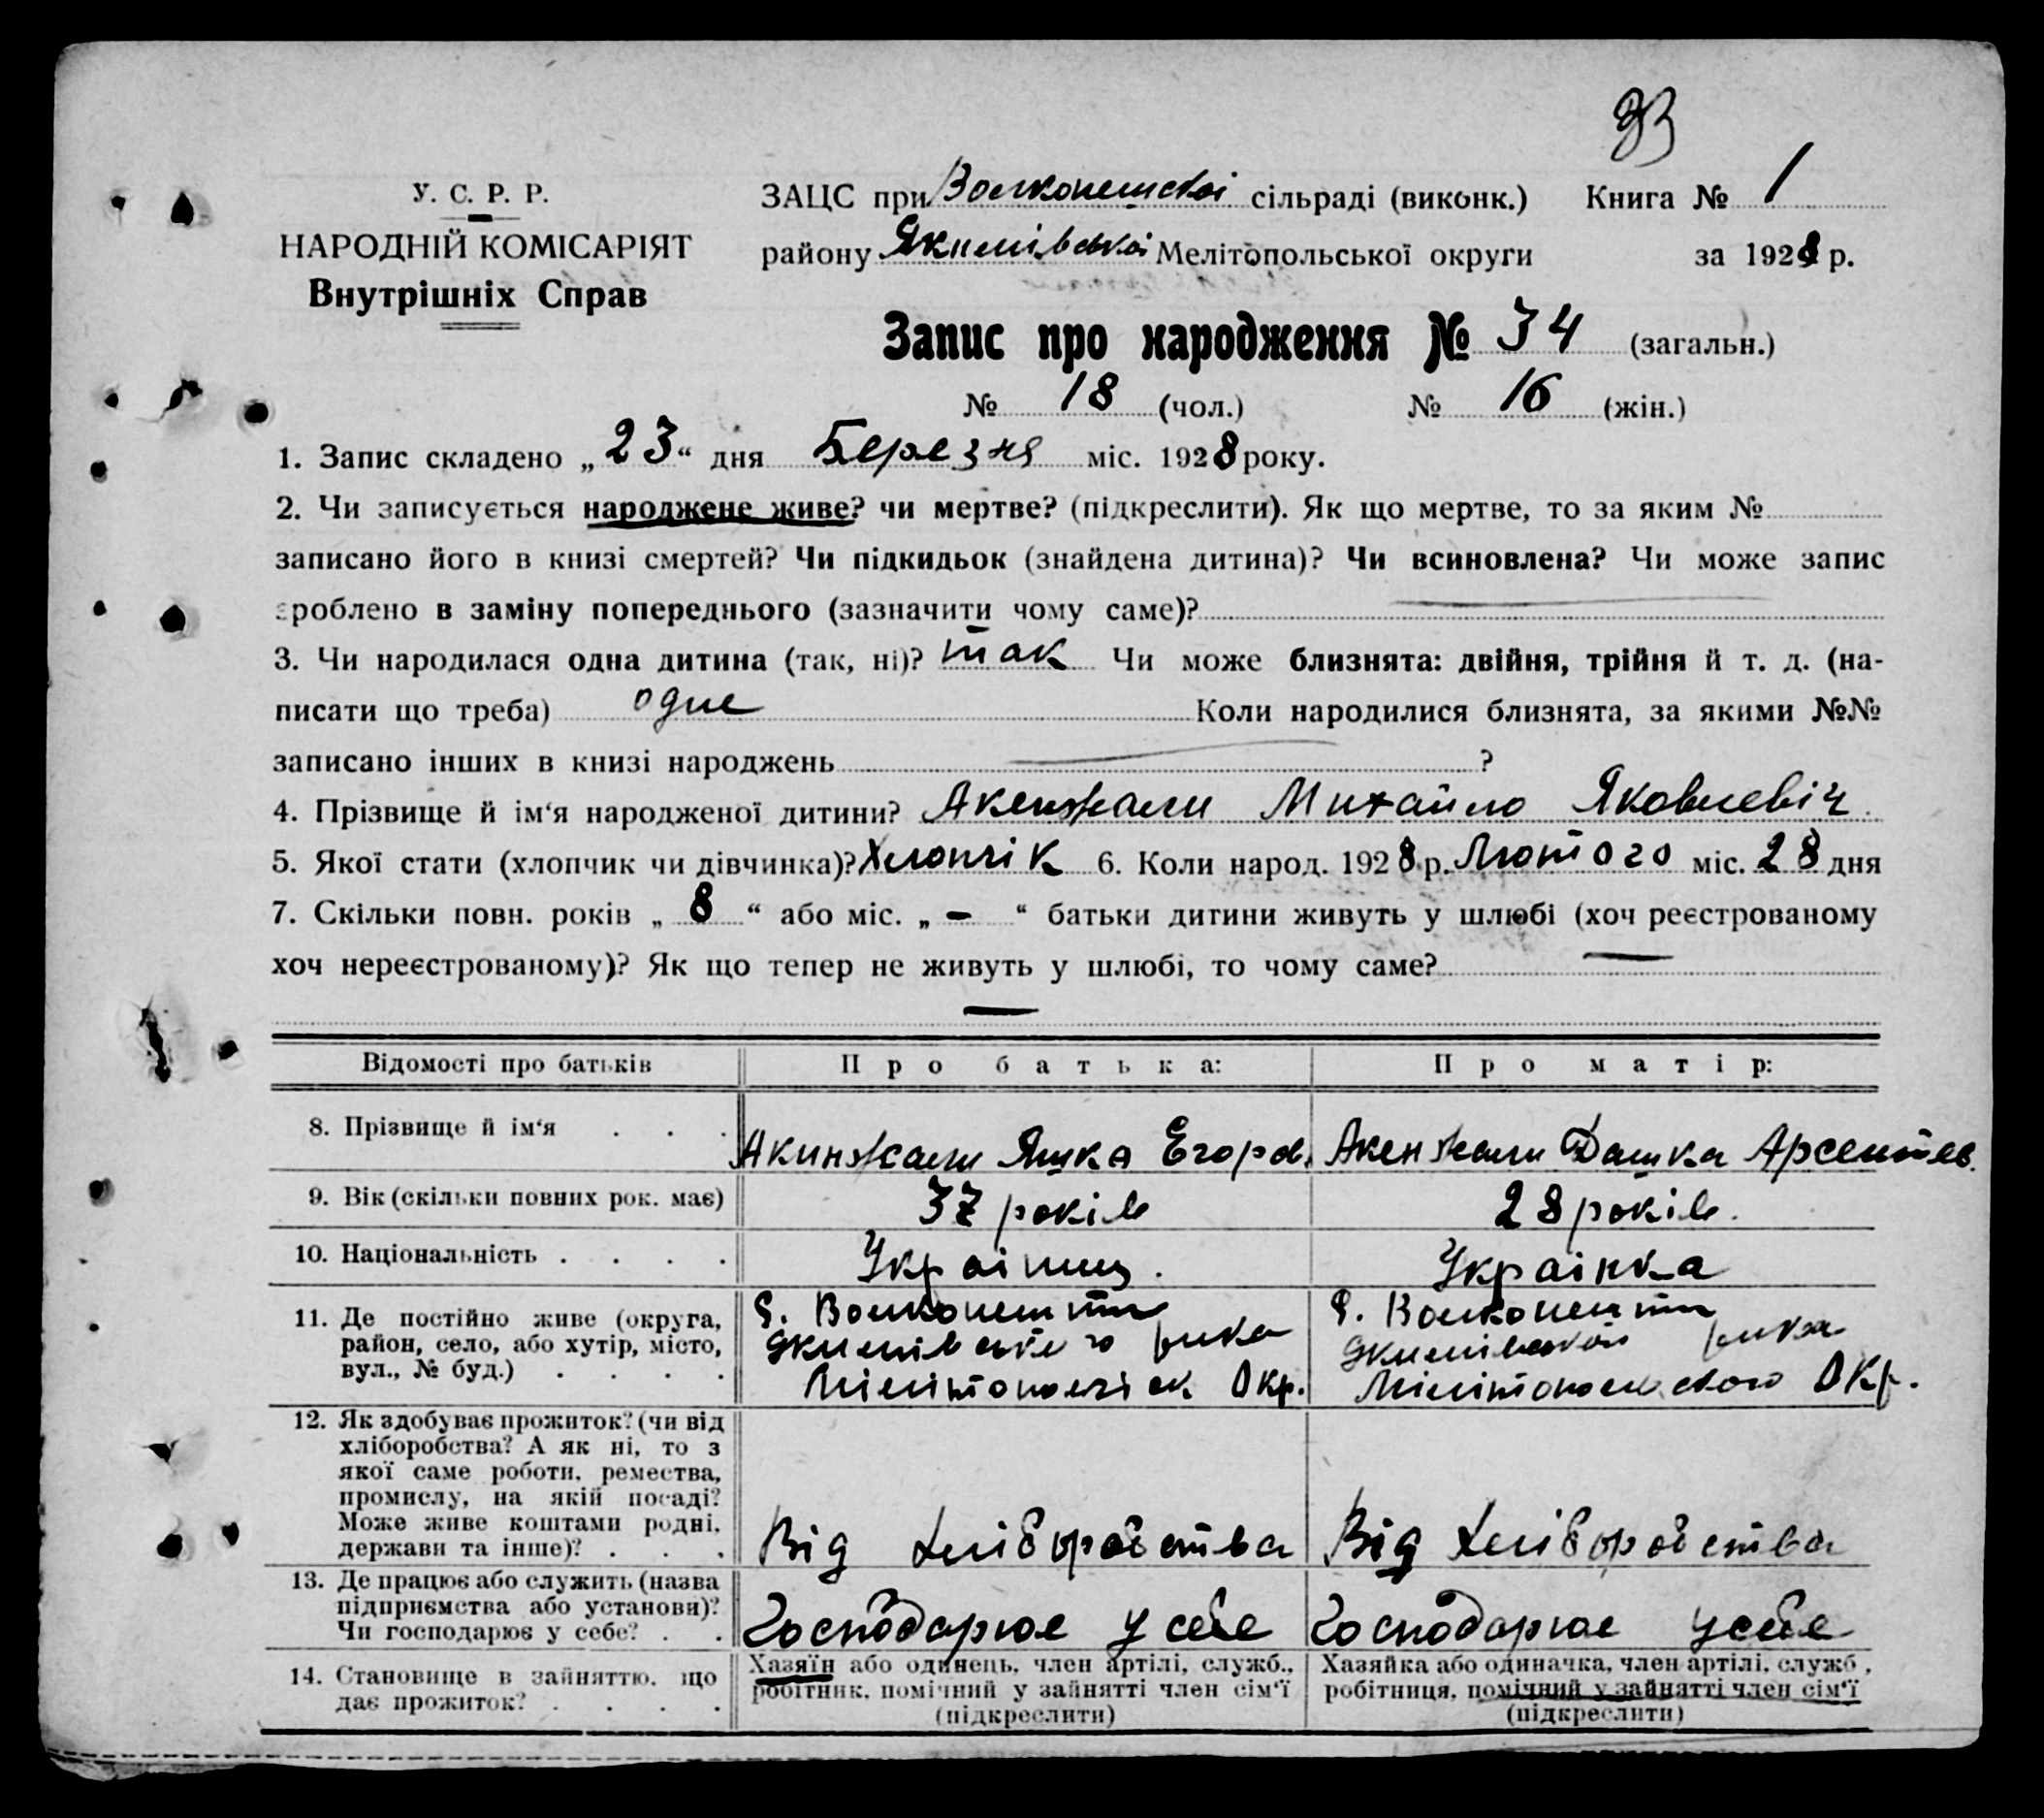 33
У. С. Р. Р.
НАРОДНІЙ КОМІСАРІЯТ
Внутрішніх Справ
ЗАЦС при Волконештскоі сільраді (виконк.) Книга № 1
району Якимівскоі Мелітопольської округи за 1928 р.
Запис про народження № 34 (загальн.)
№ 18 (чол.) № 16 (жін.)
1. Запис складено „23“ дня Березня міс. 1928 року.
2. Чи записується народжене живе? чи мертве? (підкреслити). Як що мертве, то за яким №
записано його в книзі смертей? Чи підкидьок (знайдена дитина)? Чи всиновлена? Чи може запис
зроблено в заміну попереднього (зазначити чому саме)?
3. Чи народилася одна дитина (так, ні)? так Чи може близнята: двійня, трійня й т. д. (на-
писати що треба) одне Коли народилися близнята, за якими №№
записано інших в книзі народжень ?
4. Прізвище й ім‘я народженої дитини? Акенжали Михайло Яковлевіч
5. Якої стати (хлопчик чи дівчинка)? Хлопчік 6. Коли народ. 1928 р. Лютого міс. 28 дня
7. Скільки повн. років „8“ або міс. „-“ батьки дитини живуть у шлюбі (хоч реєстрованому
хоч нереєстрованому)? Як що тепер не живуть у шлюбі, то чому саме? —
—
Відомості про батьків Про батька: Про матір:
8. Прізвище й ім‘я . . . Акинжали Яшка Егоров. Акенжали Дашка Арсентев.
9. Вік (скільки повних рок. має) 37 років 28 років.
10. Національність . . . . Українец. Українка
11. Де постійно живе (округа, район, село, або хутір, місто, вул., № буд.) . . . .
С. Волконешти
Якимівського рика
Мілітопольск Окр.
С. Волконешти
Якимівской рика
Мілітопольского Окр.
12. Як здобуває прожиток? (чи від
хліборобства? А як ні, то з
якої саме роботи, ремества,
промислу, на якій посаді?
Може живе коштами родні,
держави та інше)? . . . Від хліборобства Від хліборобства
13. Де працює або служить (назва
підприємства або установи)?
Чи господарює у себе? . . Господарює у себе Господарює у себе
14. Становище в зайняттю, що
дає прожиток? . . . .
Хазяїн або одинець, член артілі, служб.,
робітник, помічний у зайнятті член сім‘ї
(підкреслити)
Хазяйка або одиначка, член артілі, служб.,
робітниця, помічний у зайнятті член сім‘ї
(підкреслити)